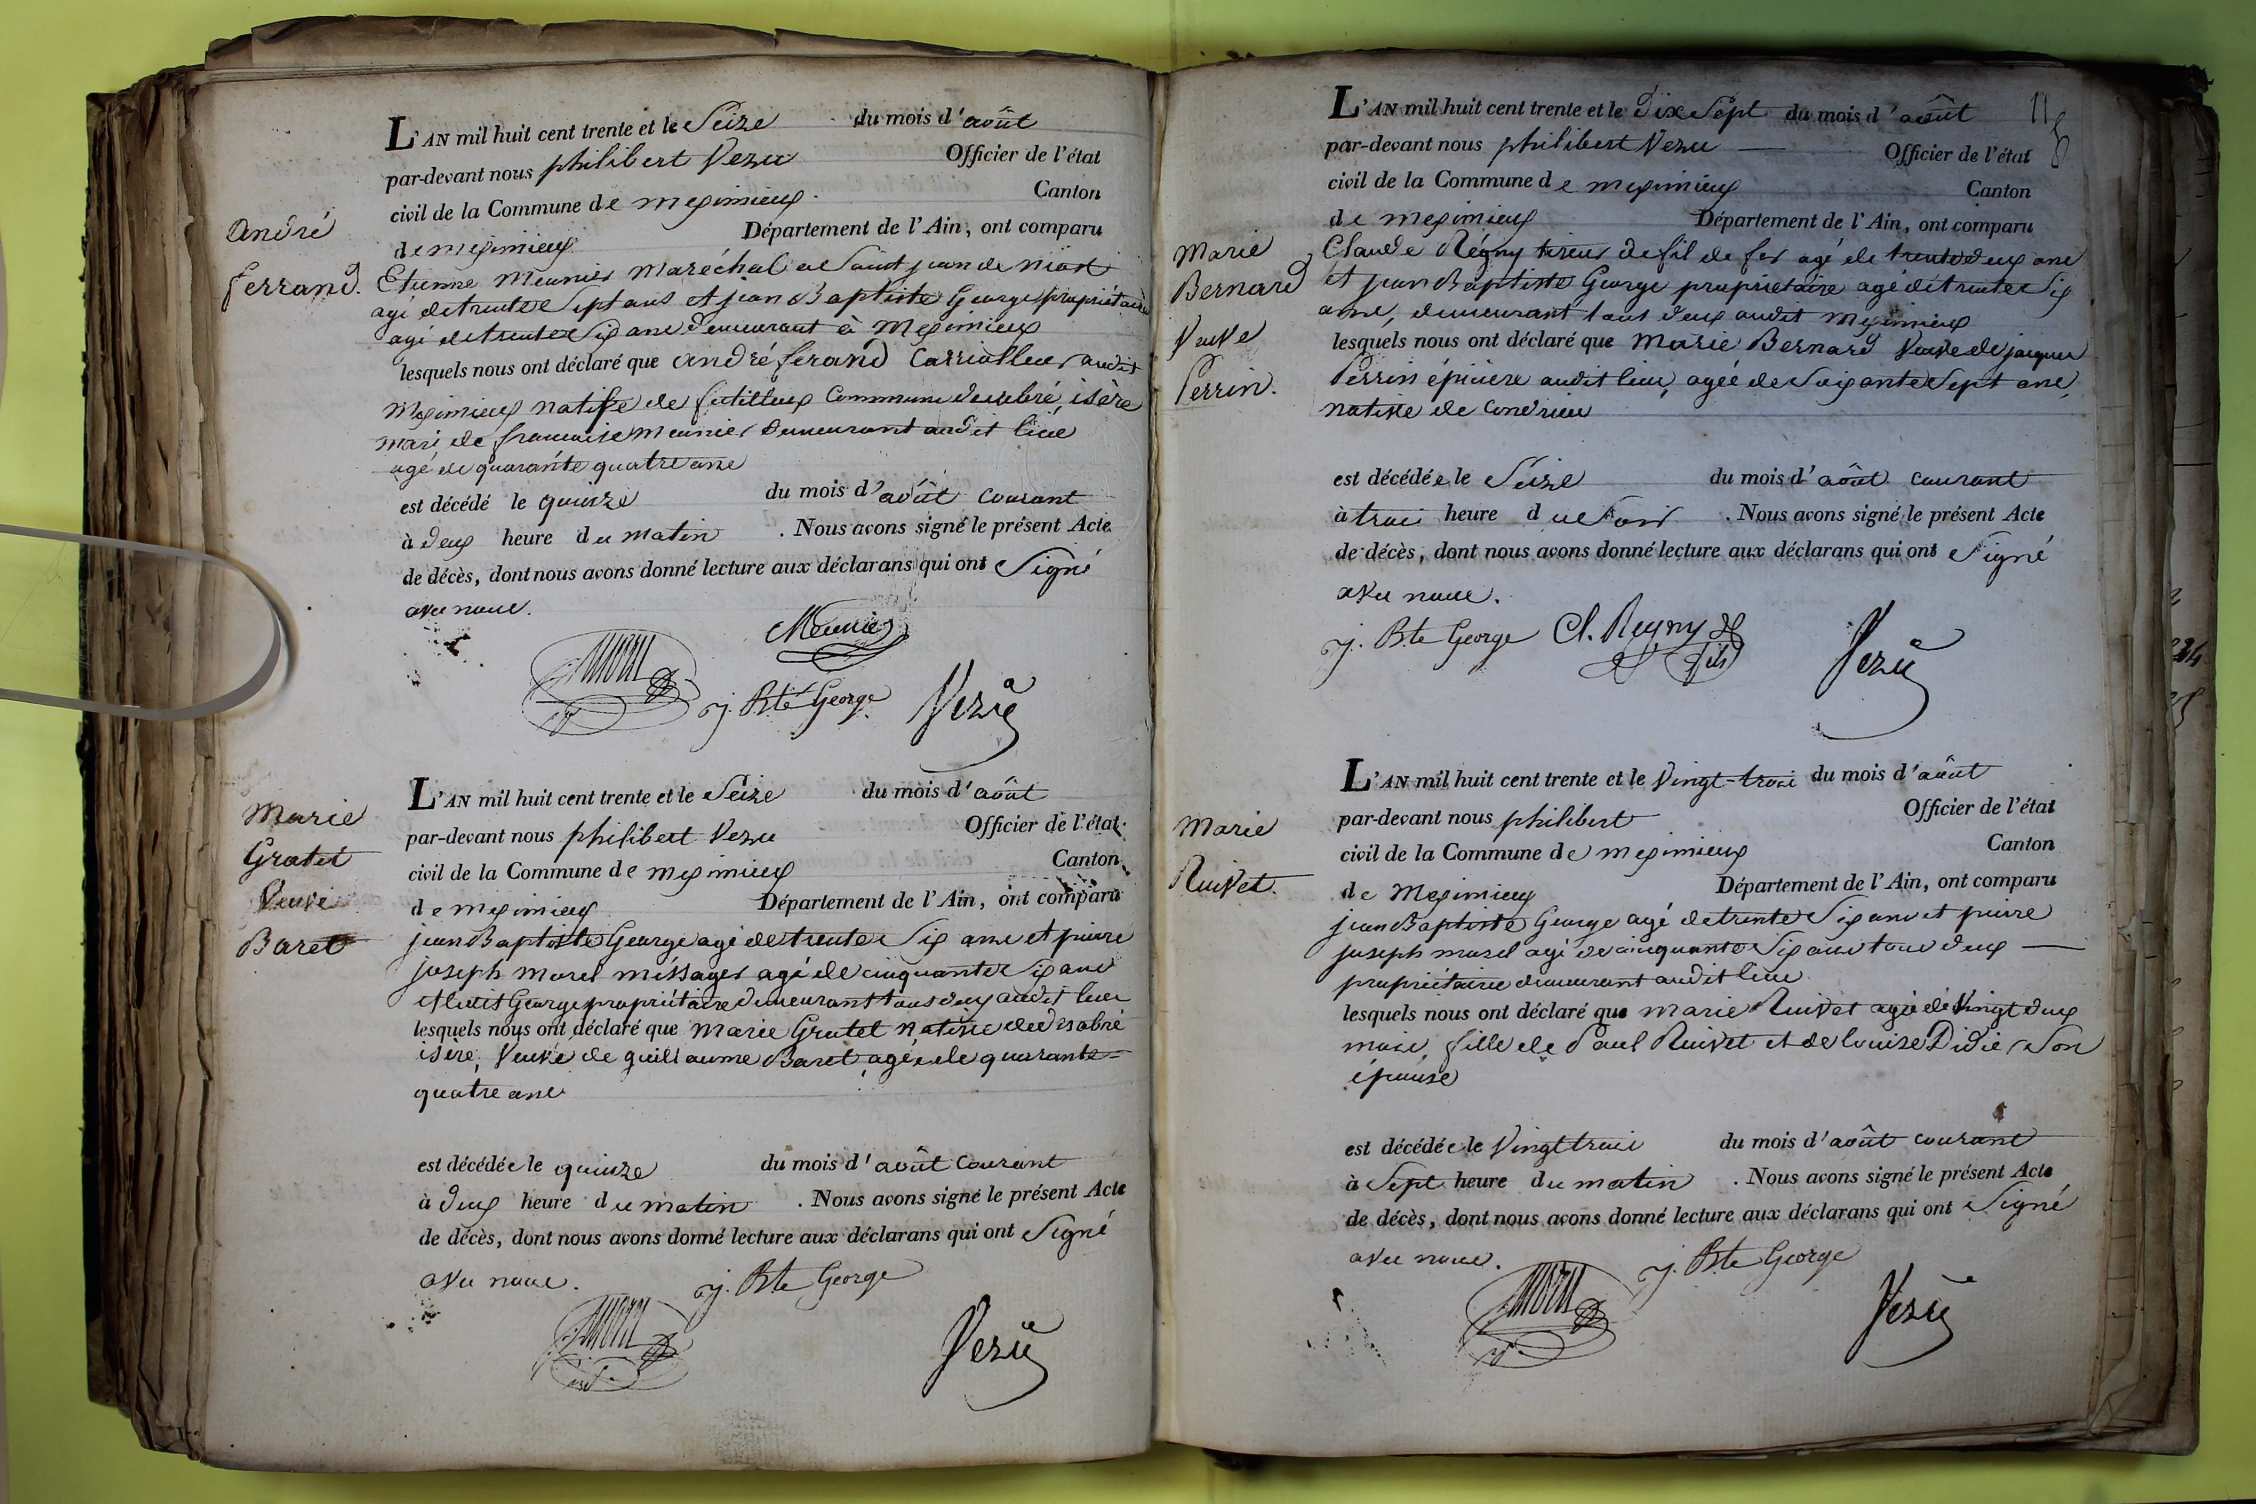 L'AN mil huit cent trente et le Seize du mois d'août
par-devant nous philibert Vezu Officier de l'état
civil de la Commune de meximieux. Canton
de meximieux Département de l'Ain, ont comparu
André
ferrand.
Etienne Meunier Maréchal a Saint jean de niost
agé de trente Sept ans et jean Baptiste George propriétaire
agé de trente Six ans demeurant à Meximieux
lesquels nous ont déclaré que andré ferand Carriolleur audit
Meximieux natife de commune isère
mari de francoise Meunier demeurant audit lieu
agé de quarante quatre ans
est décédé le quinze du mois d'août courant
à deux heure du matin . Nous avons signé le présent Acte
de décès, dont nous avons donné lecture aux déclarans qui ont Signé
avec nous.
Meunier
morel
j. Bte George Vezu
L'AN mil huit cent trente et le Seize du mois d'août
par-devant nous philibert Vezu Officier de l'état
civil de la Commune de meximieux Canton
de meximieux Département de l'Ain, ont comparu
Marie
Gratet
Veuve
Baret
jean Baptiste George agé de trente Six ans et pierre
joseph morel méssager agé de cinquante Six ans
George propriétaire demeurant tous deux audit lieu
lesquels nous ont déclaré que Marie Gratet native
isère, Veuve de guillaume Baret, agée de quarante=
quatre ans
est décédée le quinze du mois d'août Courant
à deux heure du matin . Nous avons signé le présent Acte
de décès, dont nous avons donné lecture aux déclarans qui ont Signé
avec nous. j. Bte George
morel
Vezu
L'AN mil huit cent trente et le dix Sept du mois d'août 118
par-devant nous philibert Vezu Officier de l'état
civil de la Commune de meximieux Canton
de meximieux Département de l'Ain, ont comparu
Marie
Bernard
Veuve
Perrin.
Claude Régny tireur de fil de fer agé de trente deux ans
et jean Baptiste George propriétaire agé de trente Six
ans, demeurant tous deux audit meximieux
lesquels nous ont déclaré que Marie Bernard Veuve de jacques
Perrin épiciere audit lieu, agée de Soixante Sept ans,
native de Condrieu
est décédée le Seize du mois d'août courant
à trois heure du Soir . Nous avons signé le présent Acte
de décès, dont nous avons donné lecture aux déclarans qui ont Signé
avec nous.
j. Bte George Cl. Regny fils
Vezu
L'AN mil huit cent trente et le Vingt-trois du mois d'août
par-devant nous philibert Officier de l'état
civil de la Commune de meximieux Canton
de Meximieux Département de l'Ain, ont comparu
Marie
Ruivet.
jean Baptiste George agé de trente Six ans et pierre
joseph morel agé de cinquante Six ans tous deux
propriétaire demeurant audit lieu
lesquels nous ont déclaré que marie Ruivet agée de Vingt deux
mois, fille de Paul Ruivet et de louise Didier Son
épouse
est décédée le Vingt trois du mois d'août courant
à Sept heure du matin . Nous avons signé le présent Acte
de décès, dont nous avons donné lecture aux déclarans qui ont Signé
avec nous. j. Bte George
morel
Vezu